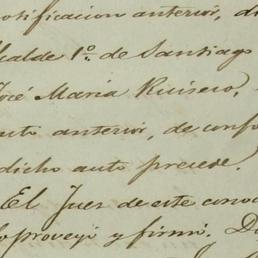 notificacion anterior, di
alcalde 1º. de Santiago
José Maria
auto anterior, de confo
dicho auto precede.
El Juez de este conoc
lo proveyó y firmó. Do